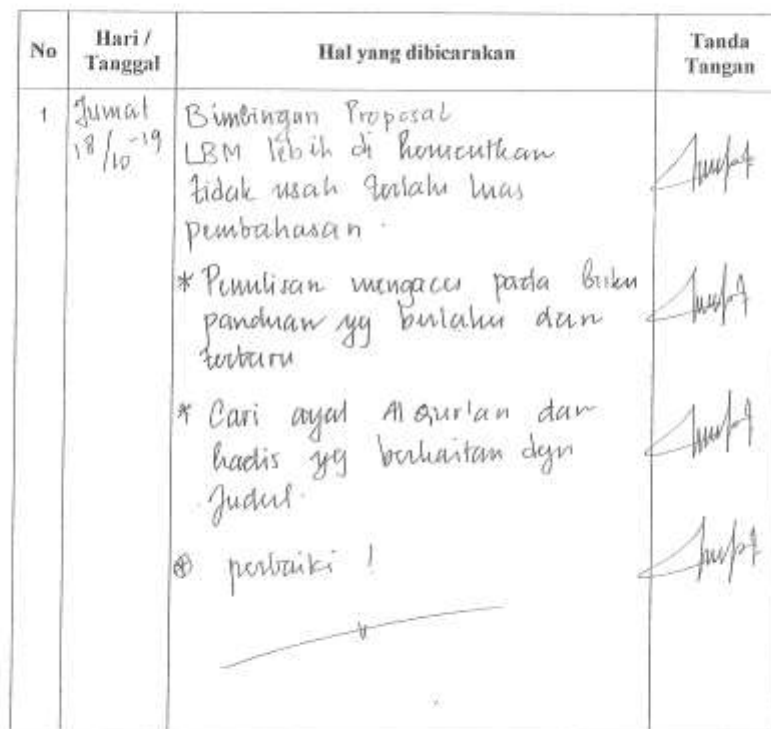 No
Hari /
Tanggal
Hal yang dibicarakan
Tanda
Tangan
1
Jumat
18/10-19
Bimbingan Proposal
LBM lebih di kerucutkan
tidak usah terlalu luas
pembahasan.
* Penulisan mengacu pada Buku
panduan yg berlaku dan
terbaru
* Cari ayat Al Qur'an dan
hadis yg berkaitan dgn
Judul.
* perbaiki !